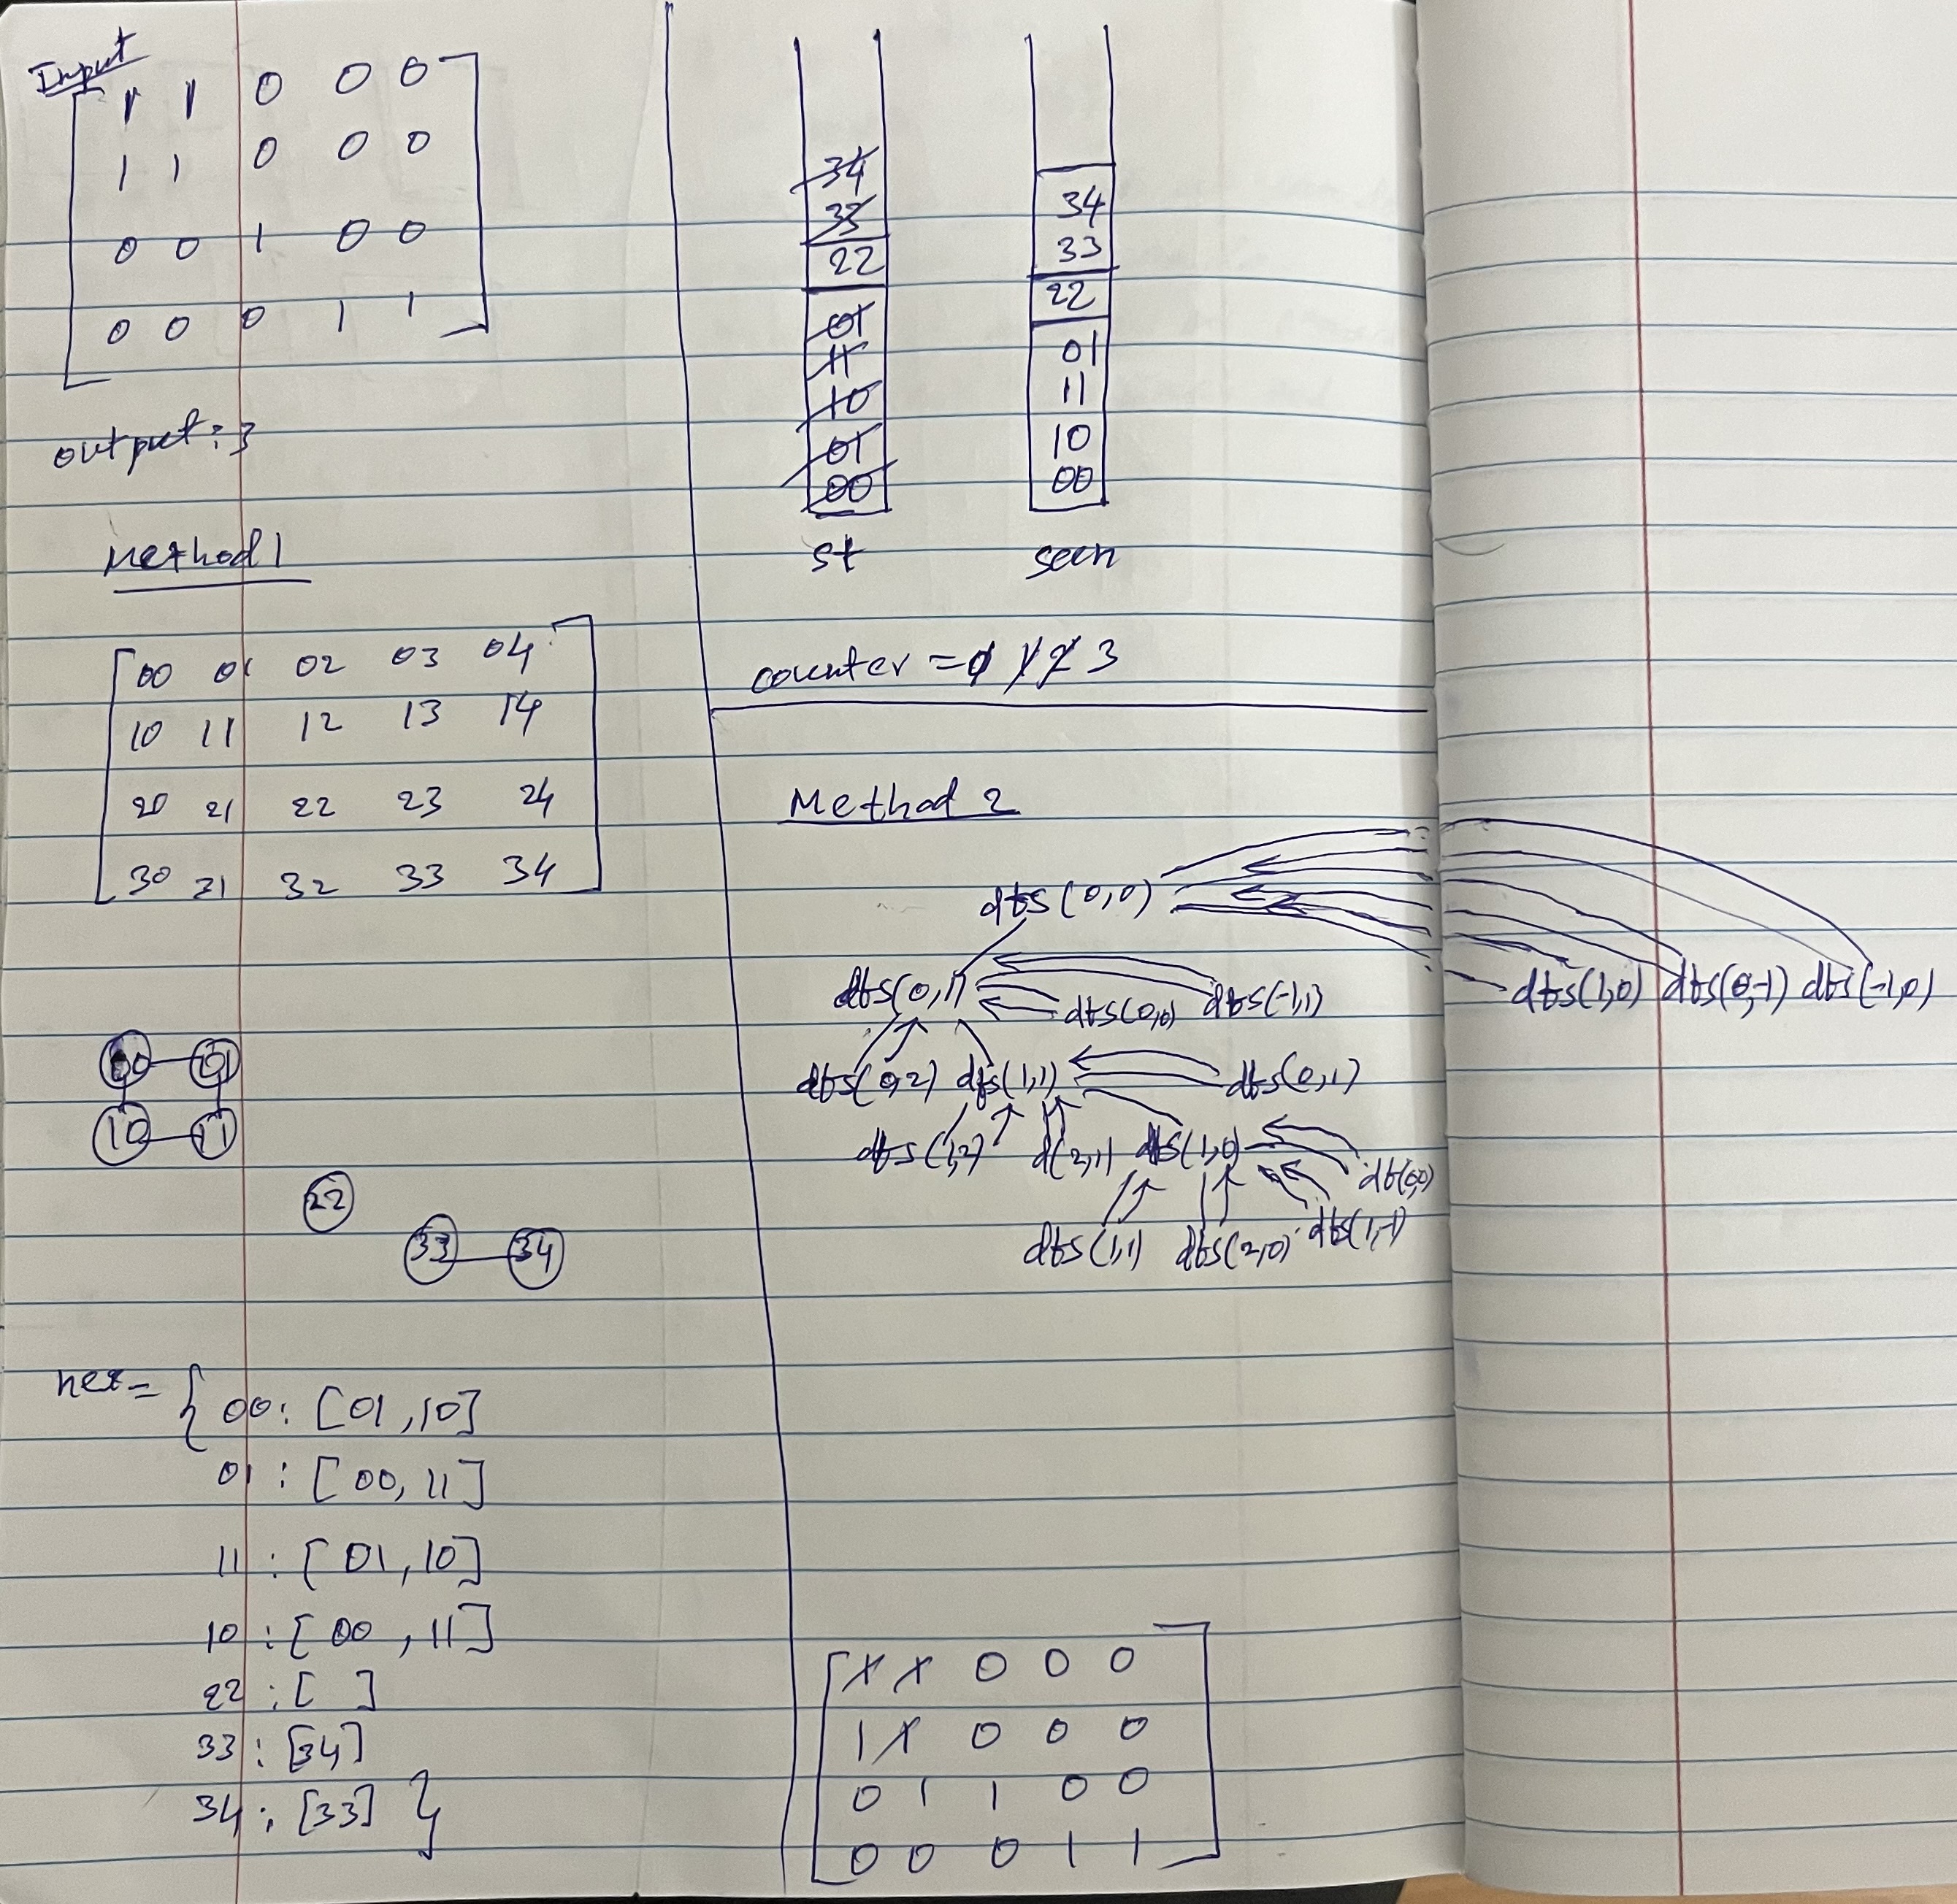 Input
1 1 0 0 0
1 1 0 0 0
0 0 1 0 0
0 0 0 1 1
output: 3
Method 1
00 01 02 03 04
10 11 12 13 14
20 21 22 23 24
30 31 32 33 34
00 01
10 11
22
33 34
nei = { 00: [01, 10]
01 : [00, 11]
11 : [01, 10]
10 : [00, 11]
22 : [ ]
33 : [34]
34 : [33] }
34
33
22
01
11
10
01
00
st
34
33
22
01
11
10
00
seen
counter = 0 1 2 3
Method 2
dfs(0,0)
dfs(0,1) dfs(0,0) dfs(-1,1) dfs(1,0) dfs(0,-1) dfs(-1,0)
dfs(0,2) dfs(1,1) dfs(0,1)
dfs(1,2) d(2,1) dfs(1,0) df(0,0)
dfs(1,1) dfs(2,0) dfs(1,-1)
1 1 0 0 0
1 1 0 0 0
0 1 1 0 0
0 0 0 1 1